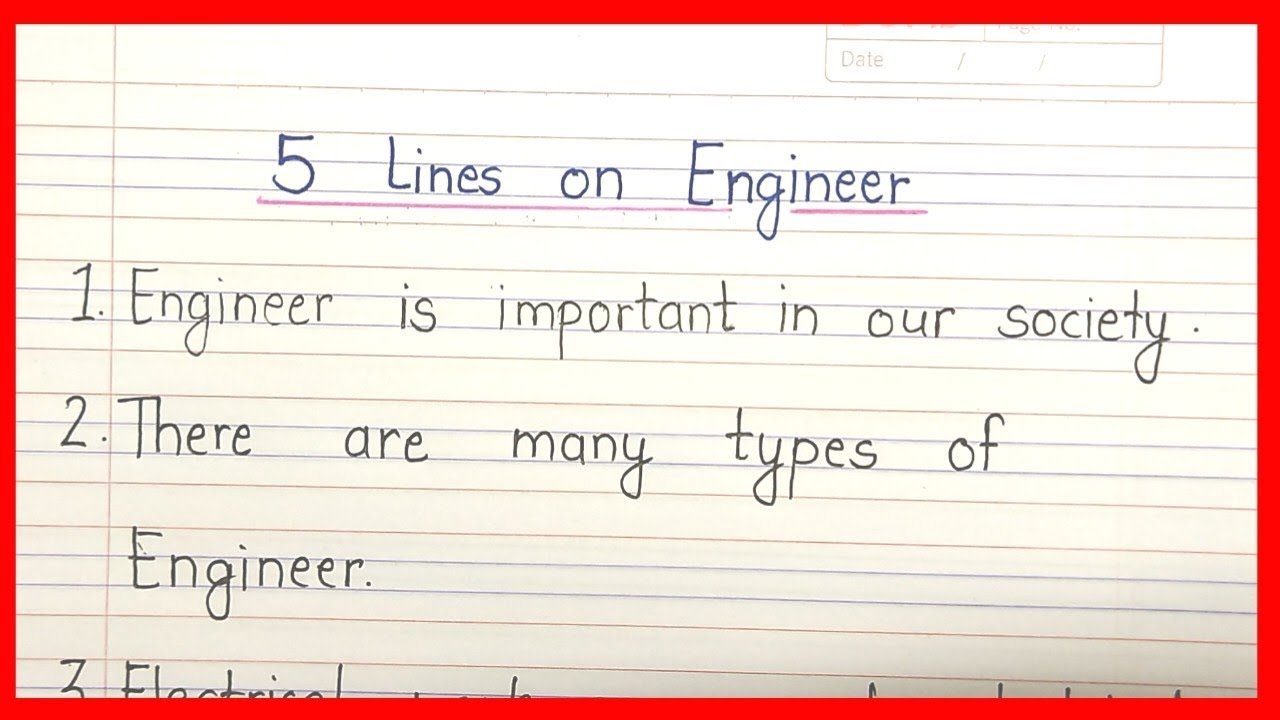 Page No.
Date / /
5 Lines on Engineer
1. Engineer is important in our society.
2. There are many types of
Engineer.
3. Electrical